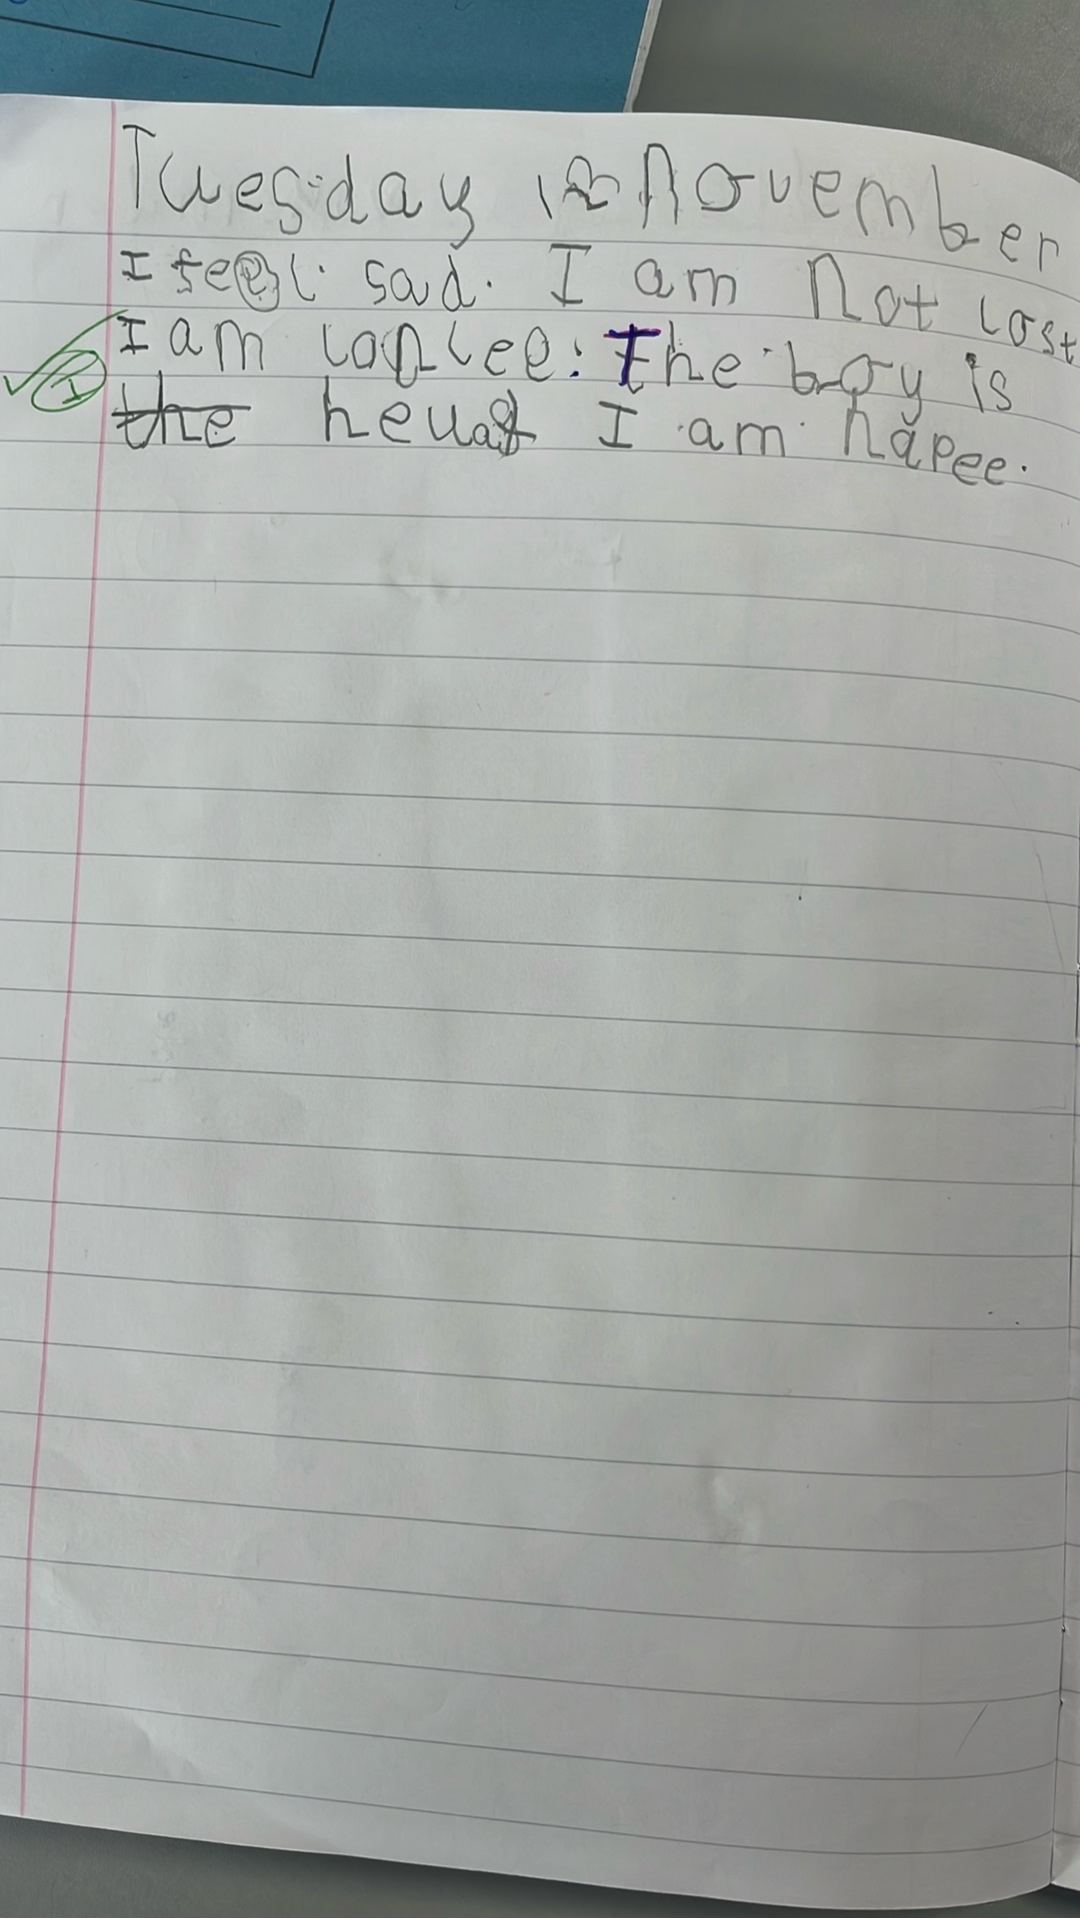 Tuesday 12 November
I feel sad. I am not lost
I am lonlee. The boy is
the I am hapee.